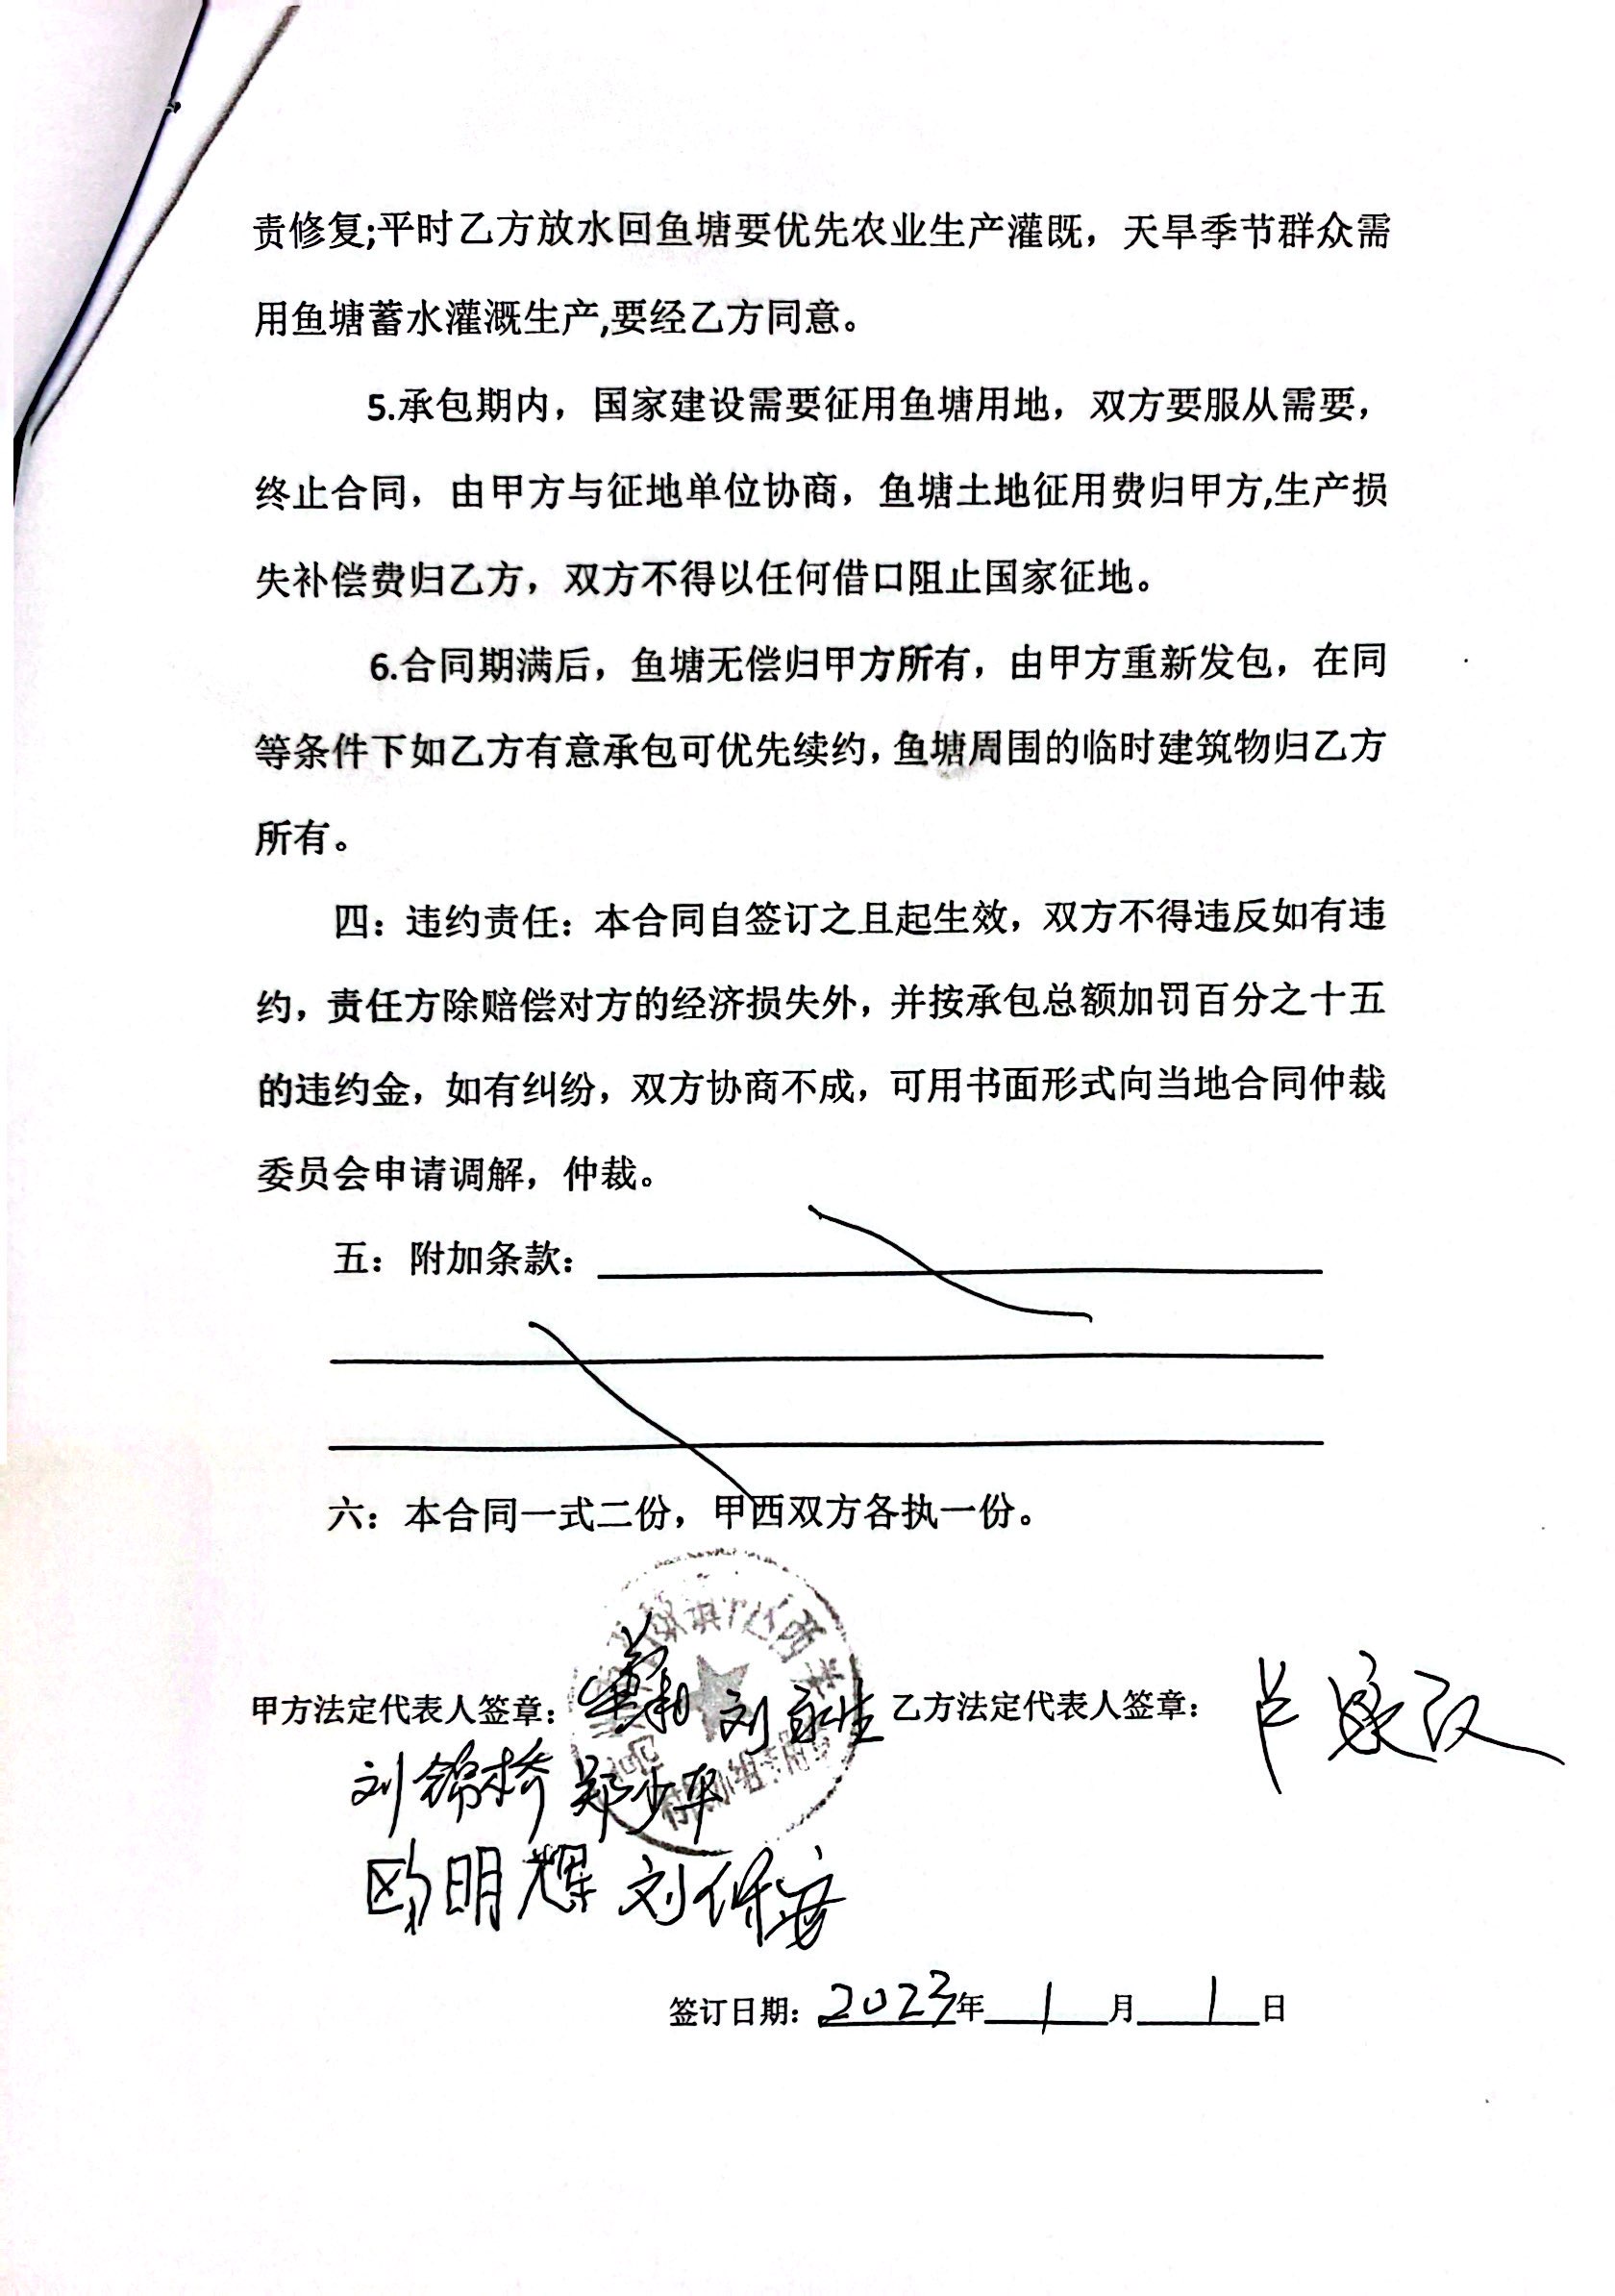 责修复;平时乙方放水回鱼塘要优先农业生产灌既，天旱季节群众需
用鱼塘蓄水灌溉生产,要经乙方同意。
5.承包期内，国家建设需要征用鱼塘用地，双方要服从需要，
终止合同，由甲方与征地单位协商，鱼塘土地征用费归甲方,生产损
失补偿费归乙方，双方不得以任何借口阻止国家征地。
6.合同期满后，鱼塘无偿归甲方所有，由甲方重新发包，在同
等条件下如乙方有意承包可优先续约，鱼塘周围的临时建筑物归乙方
所有。
四：违约责任：本合同自签订之且起生效，双方不得违反如有违
约，责任方除赔偿对方的经济损失外，并按承包总额加罚百分之十五
的违约金，如有纠纷，双方协商不成，可用书面形式向当地合同仲裁
委员会申请调解，仲裁。
五：附加条款：
六：本合同一式二份，甲西双方各执一份。
甲方法定代表人签章： 刘 乙方法定代表人签章：
刘锦桥 郑少平
欧明辉 刘
签订日期：2023年1月1日